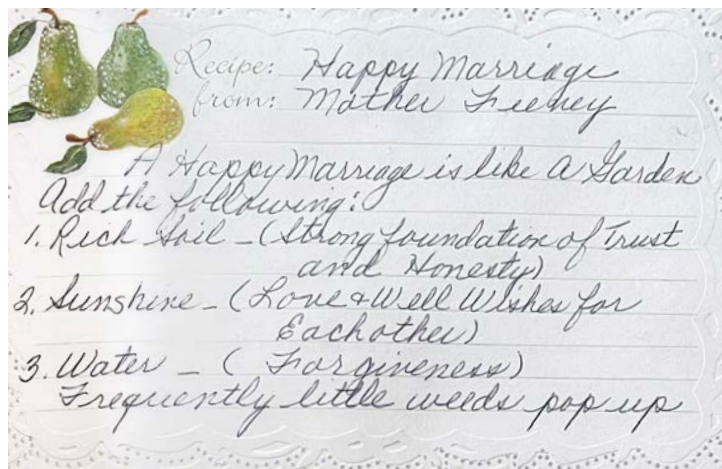 Recipe: Happy Marriage
from: Mother Feeney
A Happy Marriage is like A Garden
Add the following:
1. Rich Soil - (Strong foundation of Trust
and Honesty)
2. Sunshine - (Love & Well Wishes for
Eachother)
3. Water - (Forgiveness)
Frequently little weeds pop up